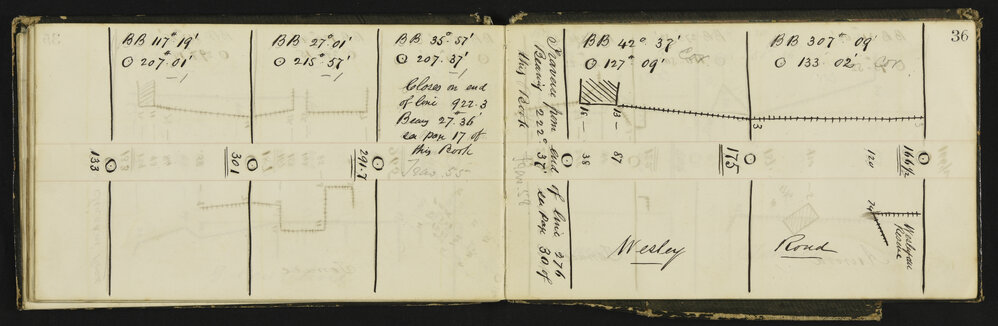 BB 117° 19'
⊙ 207. 01'
—1
BB 27° 01'
⊙ 215° 57'
—1
BB 35° 57'
⊙ 207. 37'
—1
Closes on end
of line 922.3
Bearg 27° 36'
see page 17 of
this Book
Trav. 55
133
301
291.7
36
Traverse from end of line 276
Bearing 222° 37' see page 30 of
this Book
BB 42° 37'
⊙ 127° 09'
BB 307° 09'
⊙ 133 02'
16 —
13 —
3
3
38
87
175
120
166 1/2
24
Wesley
Road
Wesleyan
Reserve